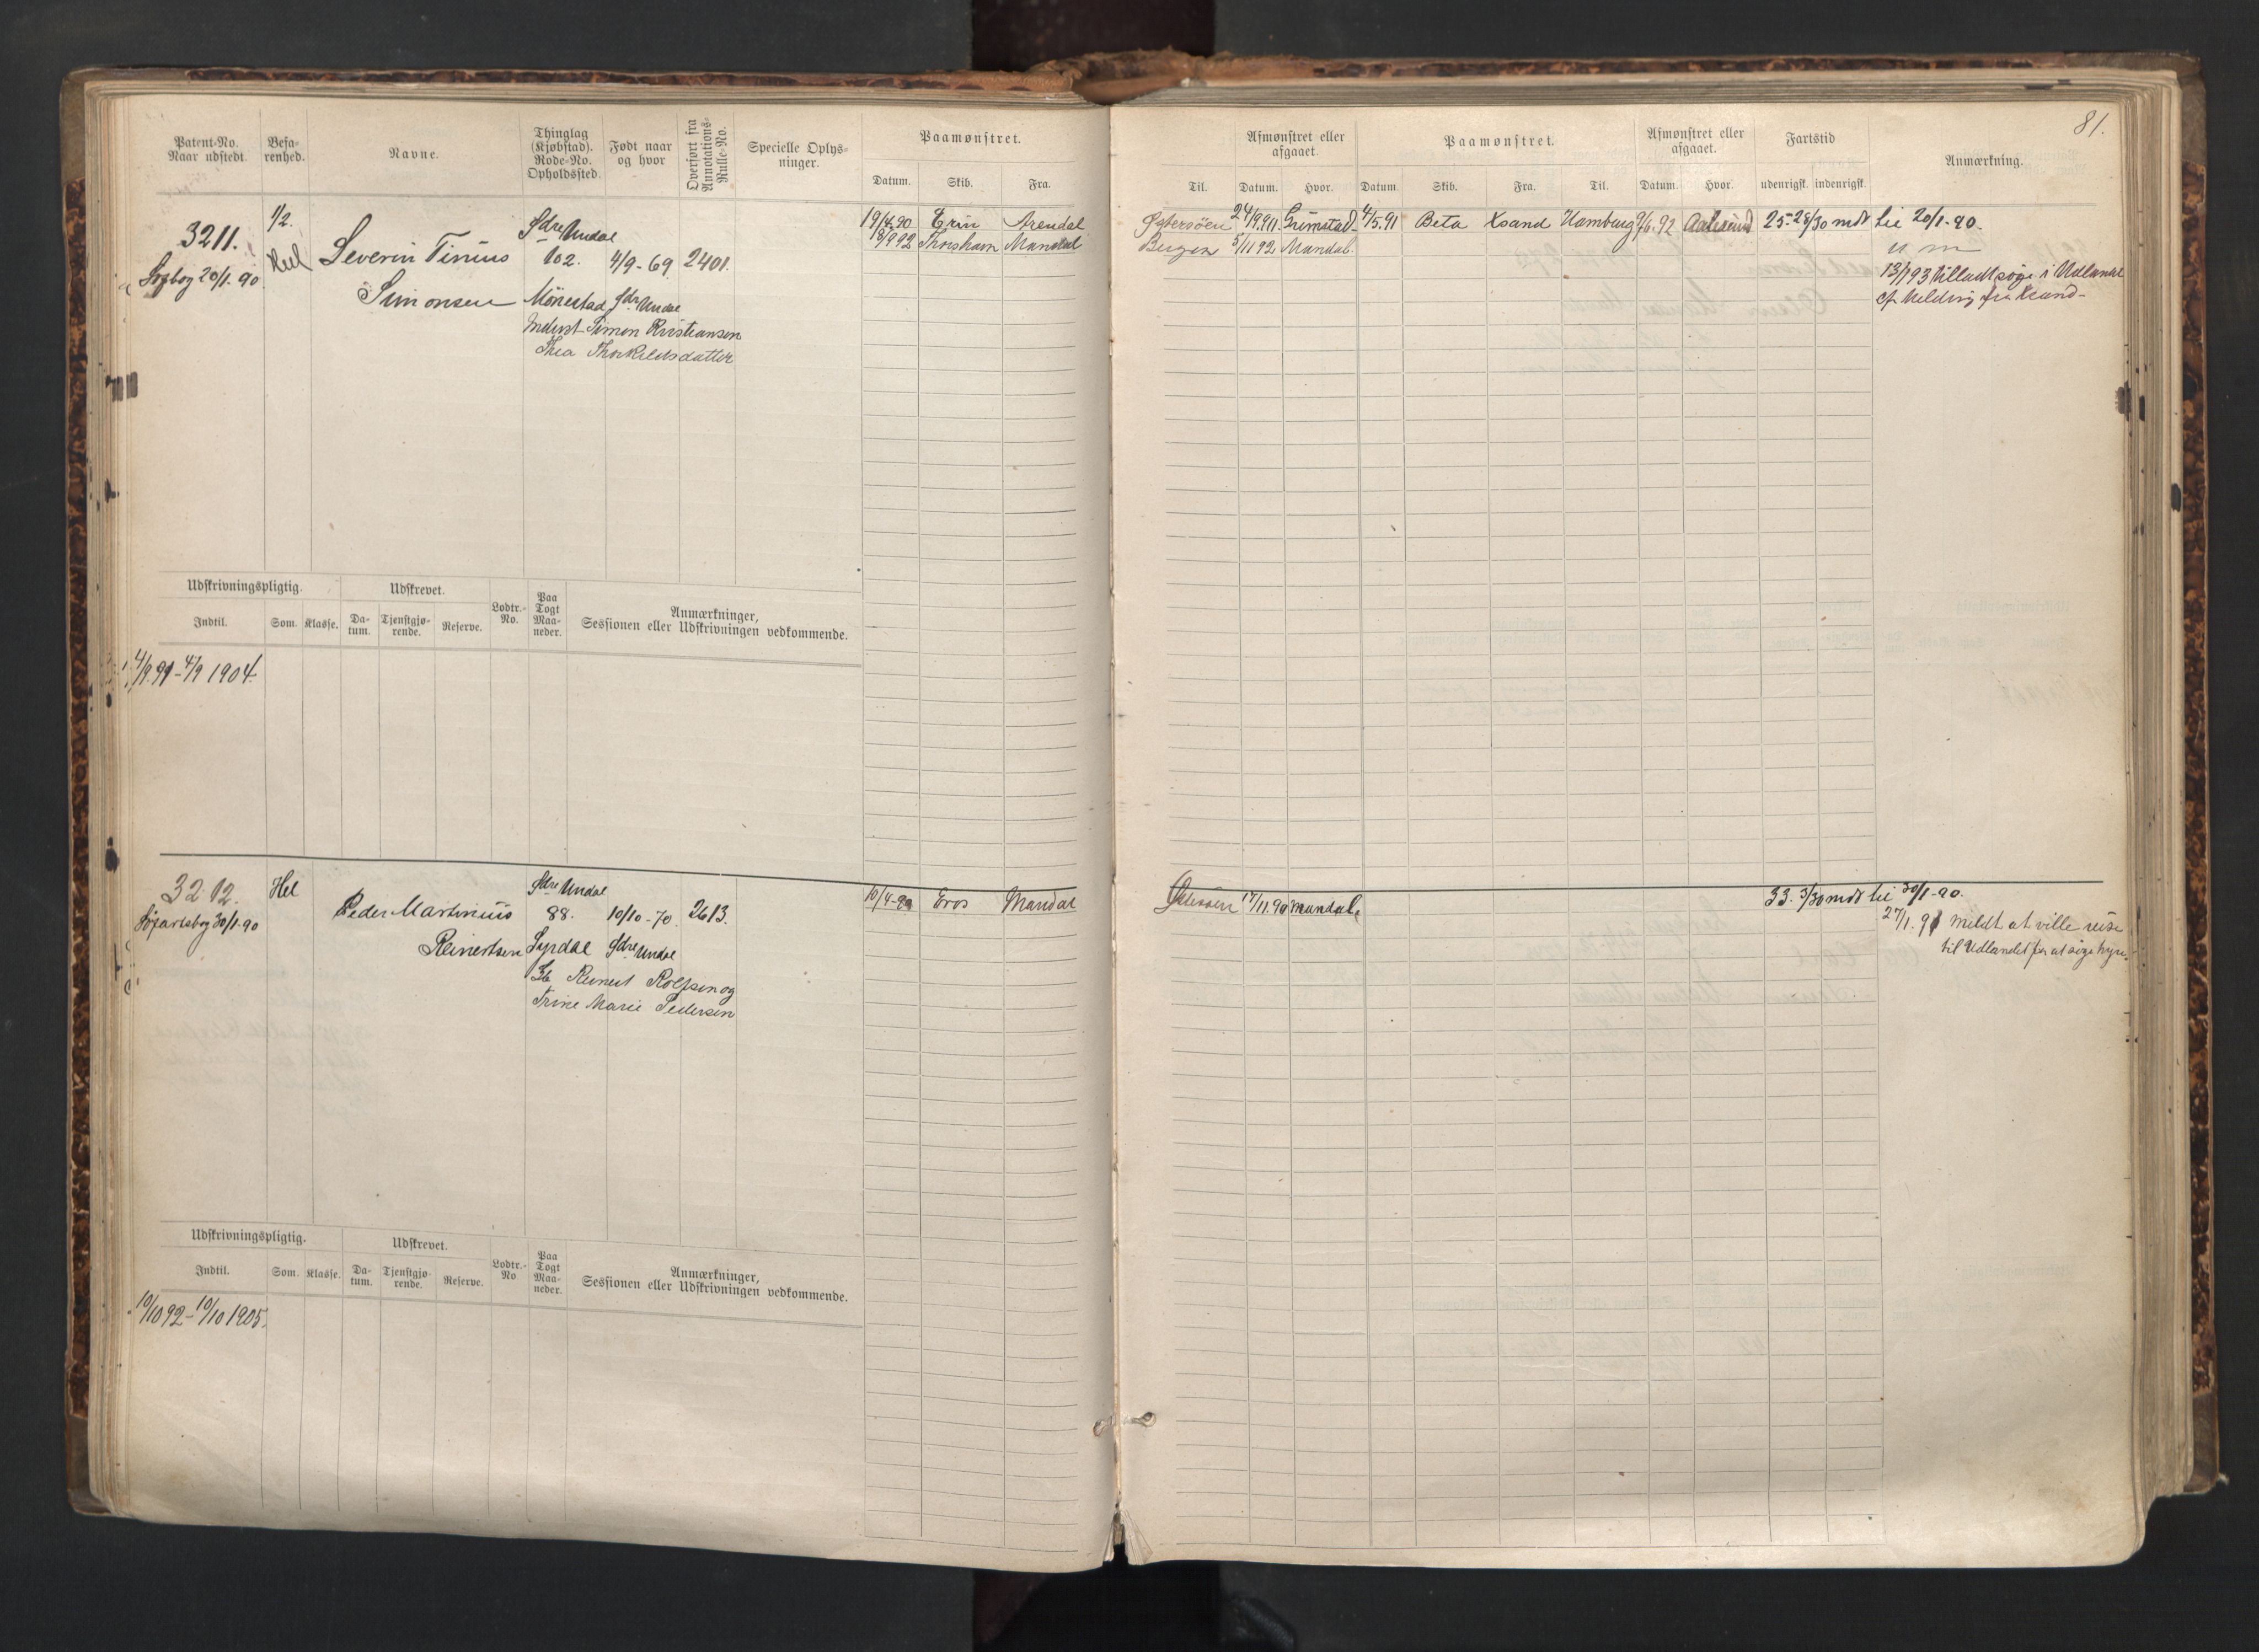 81.
Patent-No. Naar udstedt.
Befarenhed.
Navne.
Thinglag (Kjøbstad). Rode-No. Opholdssted.
Født naar og hvor
Overført fra Annotations-Rulle-No.
Specielle Oplysninger.
Paamønstret.
Datum. Skib. Fra.
Til.
Afmønstret eller afgaaet.
Datum. Hvor.
Paamønstret.
Datum. Skib. Fra. Til.
Afmønstret eller afgaaet.
Datum. Hvor.
Fartstid
udenrigsk. indenrigsk.
Anmærkning.
3211.
Søfbog 20/1-90
1/2.
Hel
Severin Tinius
Simonsen
Sdre Undal
102. 4/9-69 2401.
Mønestad Sdre Undal
Inderst Simon Kristiansen
Thea Thorkildsdatter
19/4.90 Erin Arendal Østersøen 24/9.90 Grimstad 4/5.91 Beta Xsand Hamburg 9/6.92 Aalesund 25-28/30 mdr til 20/1-90.
Thorshavn Mandal Bergen 5/11 92 Mandal.
13/1 93 tilladt søge i Udlandet
ef. Melding fra Xsand-
Udskrivningspligtig.
Indtil. Som. Klasse.
Udskrevet.
Datum. Tjenstgjørende. Reserve.
Lodtr.-No.
Paa Togt Maaneder.
Anmærkninger,
Sessionen eller Udskrivningen vedkommende.
4/9.91-4/9 1904.
3212.
Søfartsbog 30/1-90
Hel
Peder Martinius
Reinertsen
Sdre Undal
88. 10/10-70. 2613.
Syrdal Sdre Undal
Reinert Rolfsen og
Trine Marie Pedersen
10/4-90 Eros Mandal Østersøen 17/11.90 Mandal. 33. 3/30 mdr til 30/1-90.
27/1.91 meldt at ville reise
til Udlandet for at søge hyre.
Udskrivningspligtig.
Indtil. Som. Klasse.
Udskrevet.
Datum. Tjenstgjørende. Reserve.
Lodtr.-No
Paa Togt Maaneder.
Anmærkninger,
Sessionen eller Udskrivningen vedkommende.
10/10 92-10/10 1905.